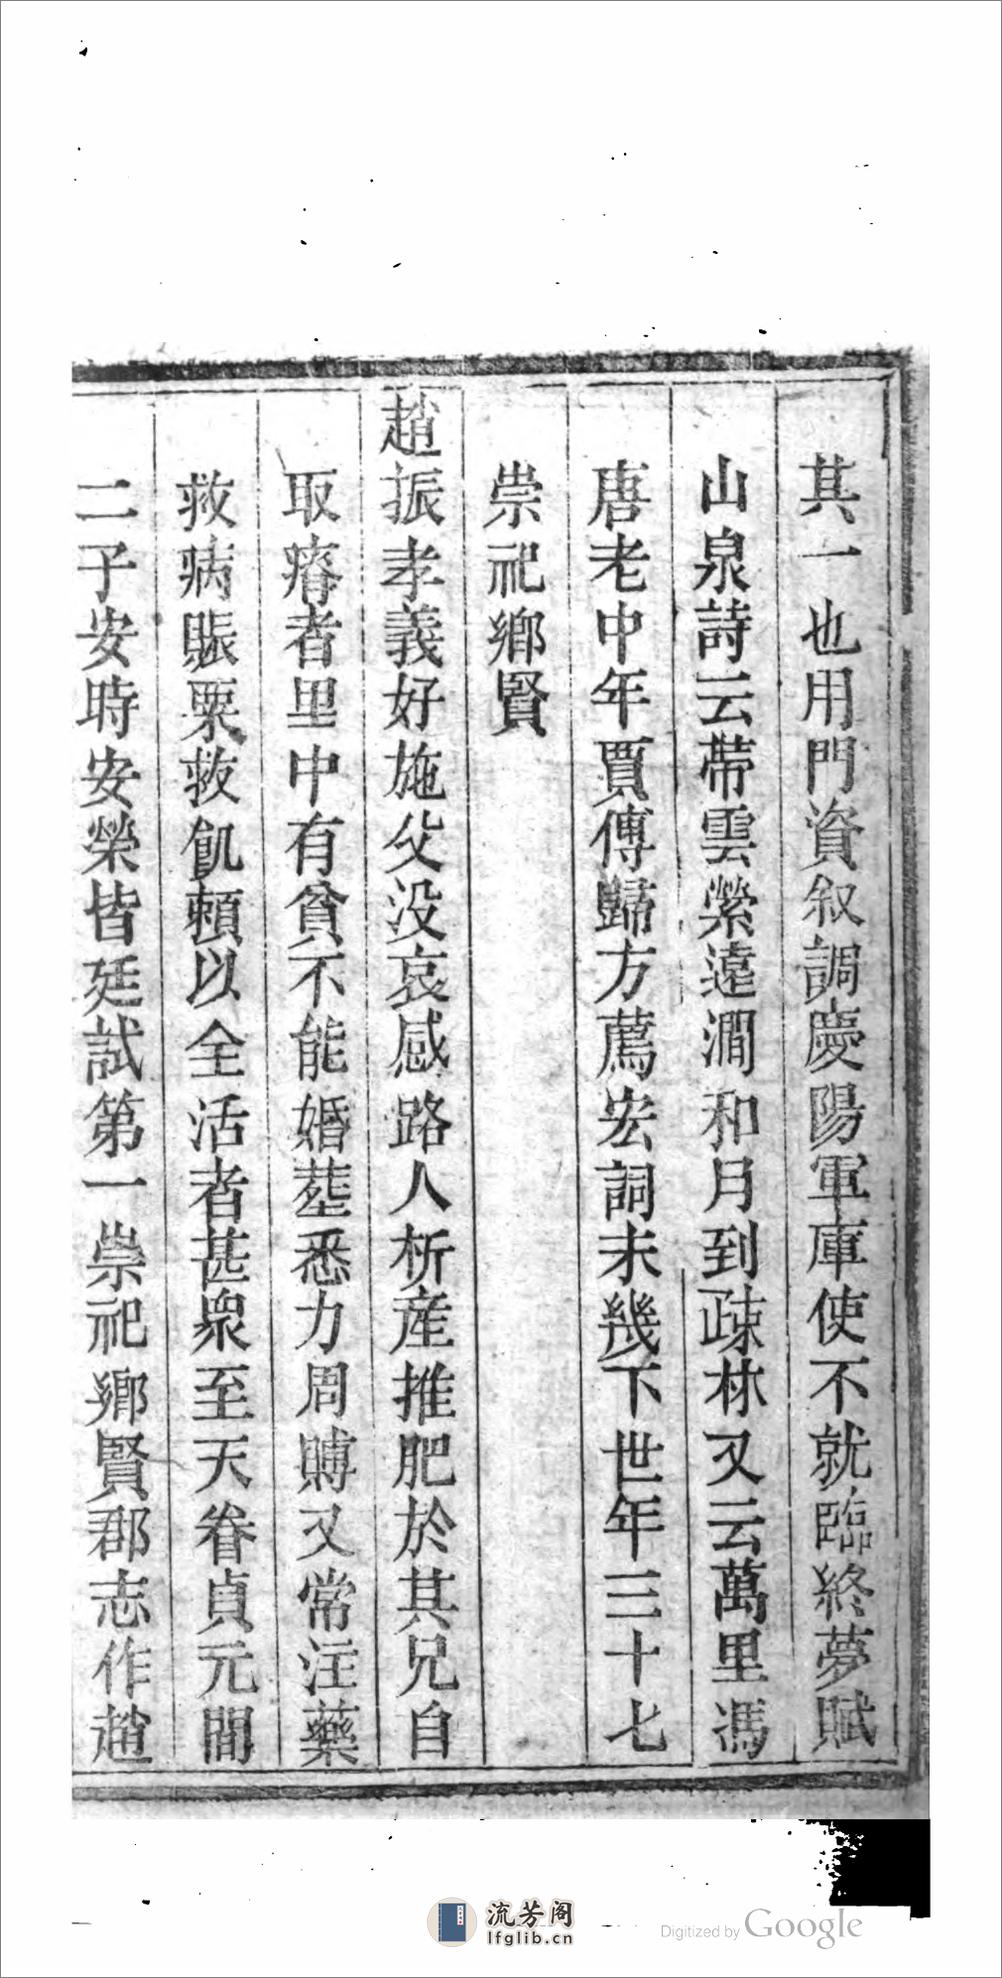 其一也用門資叙調慶陽軍庫使不就臨終夢賦
山泉詩云帶雲縈遠澗和月到疎林又云萬里馮
唐老中年賈傅歸方薦宏詞未幾下世年三十七
崇祀鄉賢
趙振孝義好施父没哀感路人析産推肥於其兄自
取瘠者里中有貧不能婚塟悉力周賻又常注藥
救病賑粟救飢頼以全活者甚衆至天眷貞元間
二子安時安榮皆廷試第一崇祀鄉賢郡志作趙
流芳阁
lfglib.cn
Digitized by Google